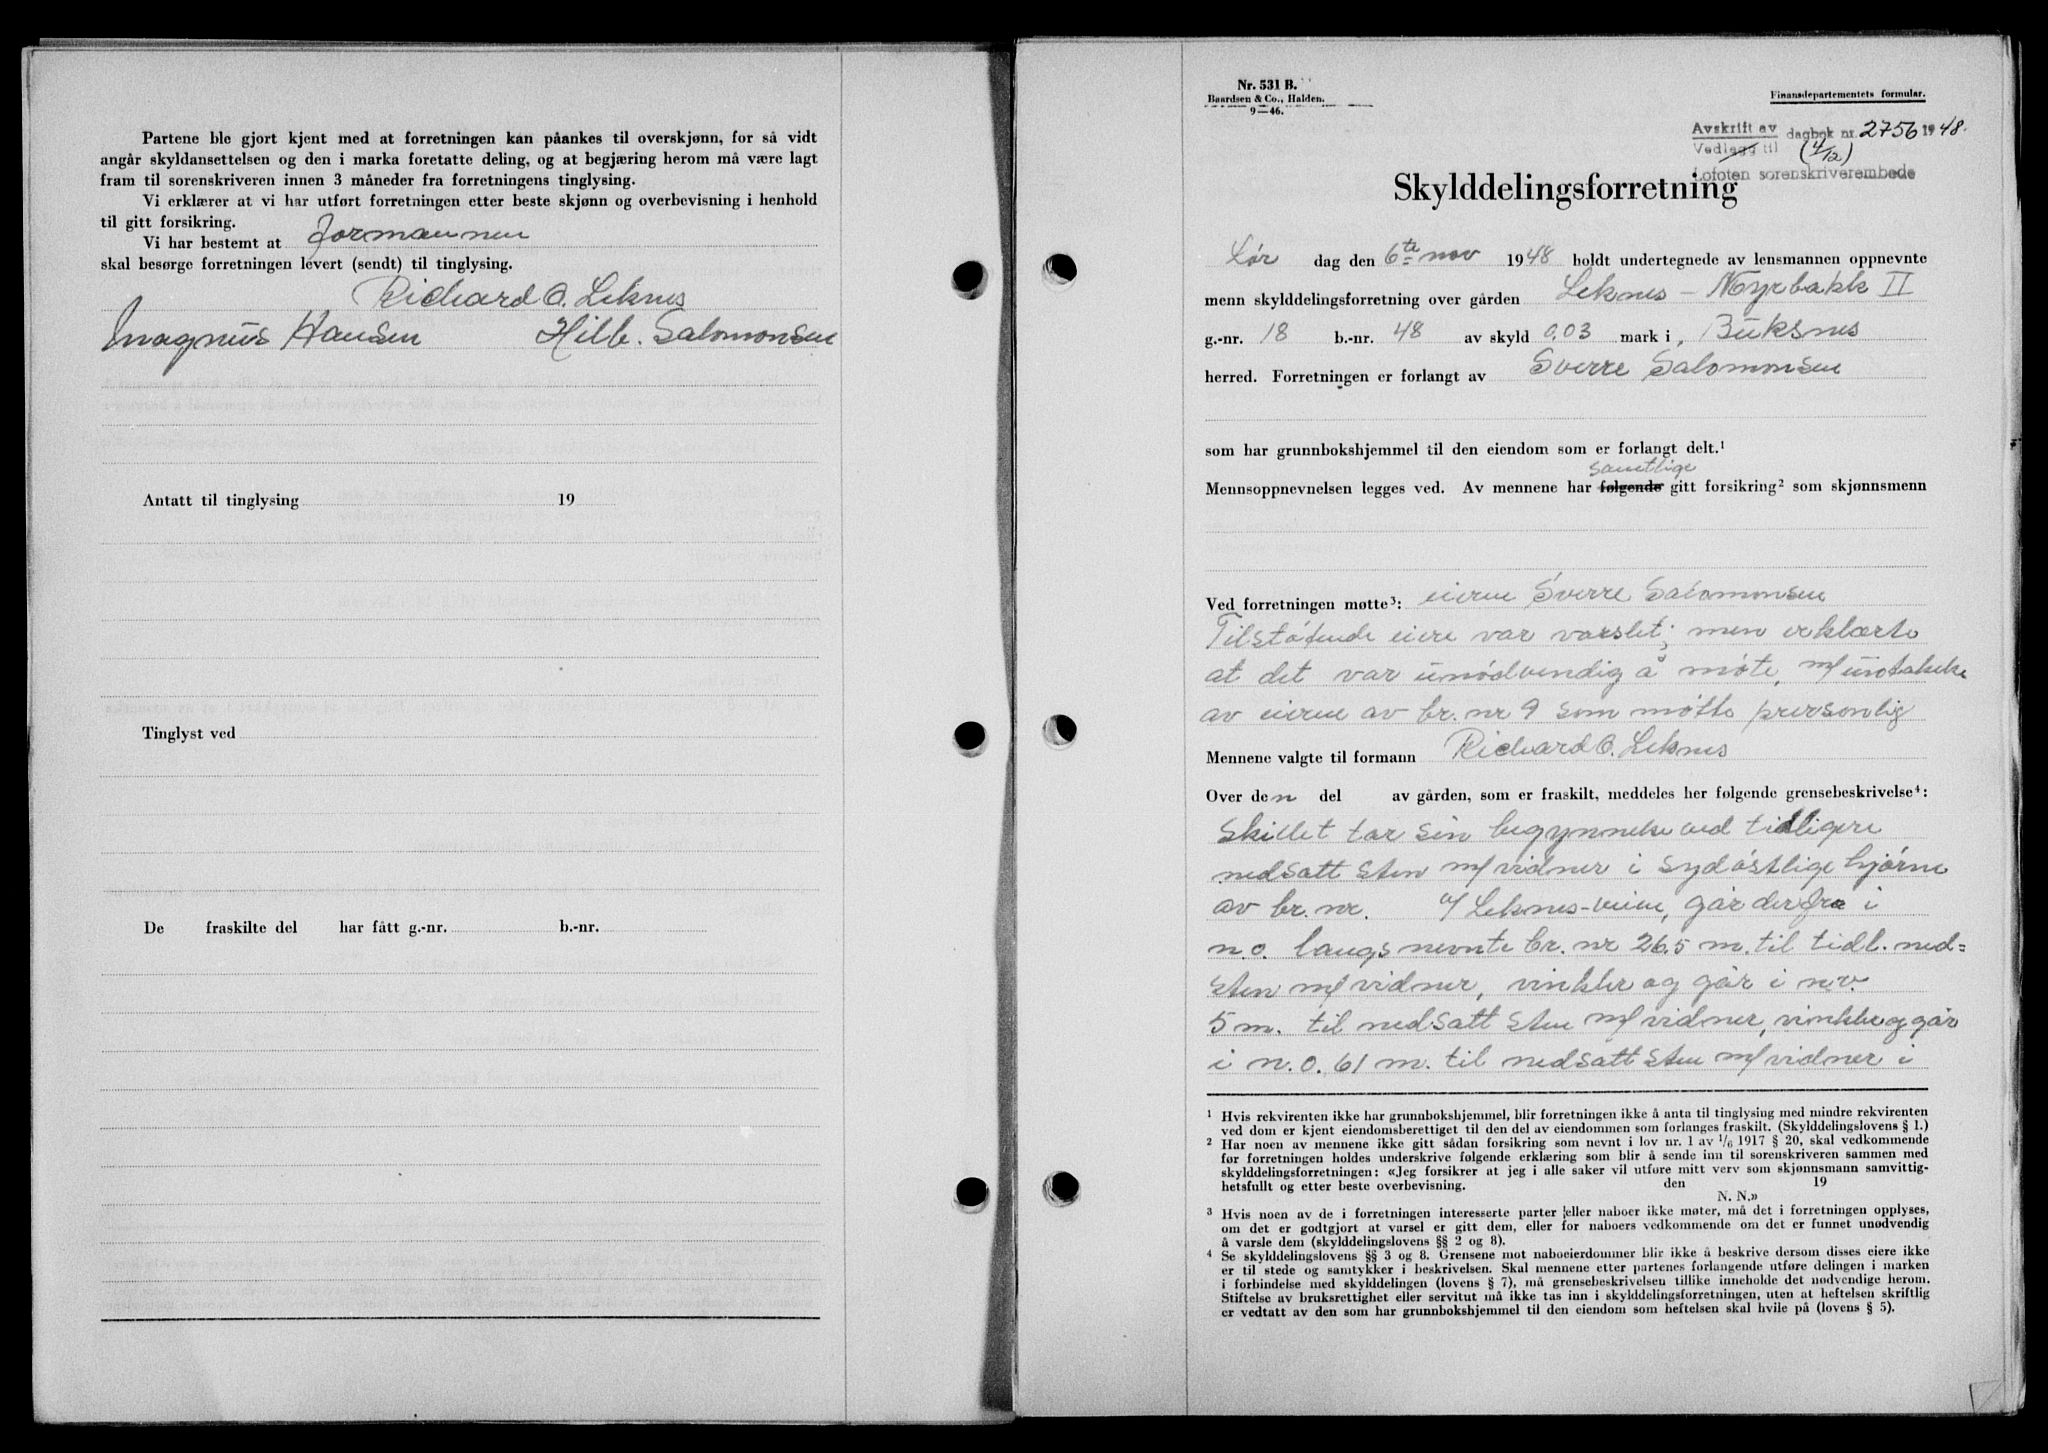 Partene ble gjort kjent med at forretningen kan påankes til overskjønn, for så vidt
angår skyldansettelsen og den i marka foretatte deling, og at begjæring herom må være lagt
fram til sorenskriveren innen 3 måneder fra forretningens tinglysing.
Vi erklærer at vi har utført forretningen etter beste skjønn og overbevisning i henhold
til gitt forsikring.
Vi har bestemt at formannen
skal besørge forretningen levert (sendt) til tinglysing.
Richard O. Leknes
Magnus Hansen Hilb. Salomonsen
Antatt til tinglysing 19
Tinglyst ved
De fraskilte del har fått g.-nr. b.-nr.
Nr. 531 B.
Baardsen & Co., Halden.
9—46.
Finansdepartementets formular.
Avskrift av dagbok nr. 2756 1948.
Vedlegg til (4/12)
Lofoten sorenskriverembede
Skylddelingsforretning
Lør dag den 6te nov 1948 holdt undertegnede av lensmannen oppnevnte
menn skylddelingsforretning over gården Leknes - Myrbakk II
g.-nr. 18 b.-nr. 48 av skyld 0,03 mark i Buksnes
herred. Forretningen er forlangt av Sverre Salomonsen
som har grunnbokshjemmel til den eiendom som er forlangt delt.¹
samtlige
Mennsoppnevnelsen legges ved. Av mennene har følgende gitt forsikring² som skjønnsmenn
Ved forretningen møtte³: eieren Sverre Salomonsen
Tilstøtende eiere var varslet, men erklærte
at det var unødvendig å møte, m/ unntakelse
av eieren av br. nr 9 som møtte personlig
Mennene valgte til formann Richard O. Leknes
Over den del av gården, som er fraskilt, meddeles her følgende grensebeskrivelse⁴:
Skillet tar sin begynnelse ved tidligere
nedsatt sten m/ vidner i sydøstlige hjørne
av br. nr. v/ Leknes-veien, går derfra i
n.o. langs nevnte br. nr 26.5 m. til tidl. ned=
sten m/ vidner, vinkler og går i n.v.
5 m. til nedsatt sten m/ vidner, vinkler og går
i n.o. 61 m. til nedsatt sten m/ vidner i
¹ Hvis rekvirenten ikke har grunnbokshjemmel, blir forretningen ikke å anta til tinglysing med mindre rekvirenten
ved dom er kjent eiendomsberettiget til den del av eiendommen som forlanges fraskilt. (Skylddelingslovens § 1.)
² Har noen av mennene ikke gitt sådan forsikring som nevnt i lov nr. 1 av 1/6 1917 § 20, skal vedkommende
før forretningen holdes underskrive følgende erklæring som blir å sende inn til sorenskriveren sammen med
skylddelingsforretningen: «Jeg forsikrer at jeg i alle saker vil utføre mitt verv som skjønnsmann samvittig-
hetsfullt og etter beste overbevisning. den 19
N. N.»
³ Hvis noen av de i forretningen interesserte parter eller naboer ikke møter, må det i forretningen opplyses,
om det er godtgjort at varsel er gitt dem, eller for naboers vedkommende om det er funnet unødvendig
å varsle dem (skylddelingslovens §§ 2 og 8).
⁴ Se skylddelingslovens §§ 3 og 8. Grensene mot naboeierdommer blir ikke å beskrive dersom disses eiere ikke
er til stede og samtykker i beskrivelsen. Skal mennene etter partenes forlangende utføre delingen i marken
i forbindelse med skylddelingen (lovens § 7), må grensebeskrivelsen tillike inneholde det nødvendige herom.
Stiftelse av bruksrettighet eller servitut må ikke tas inn i skylddelingsforretningen, uten at heftelsen skriftlig
er vedtatt av den som har grunnbokshjemmel til den eiendom som heftelsen skal hvile på (lovens § 5).